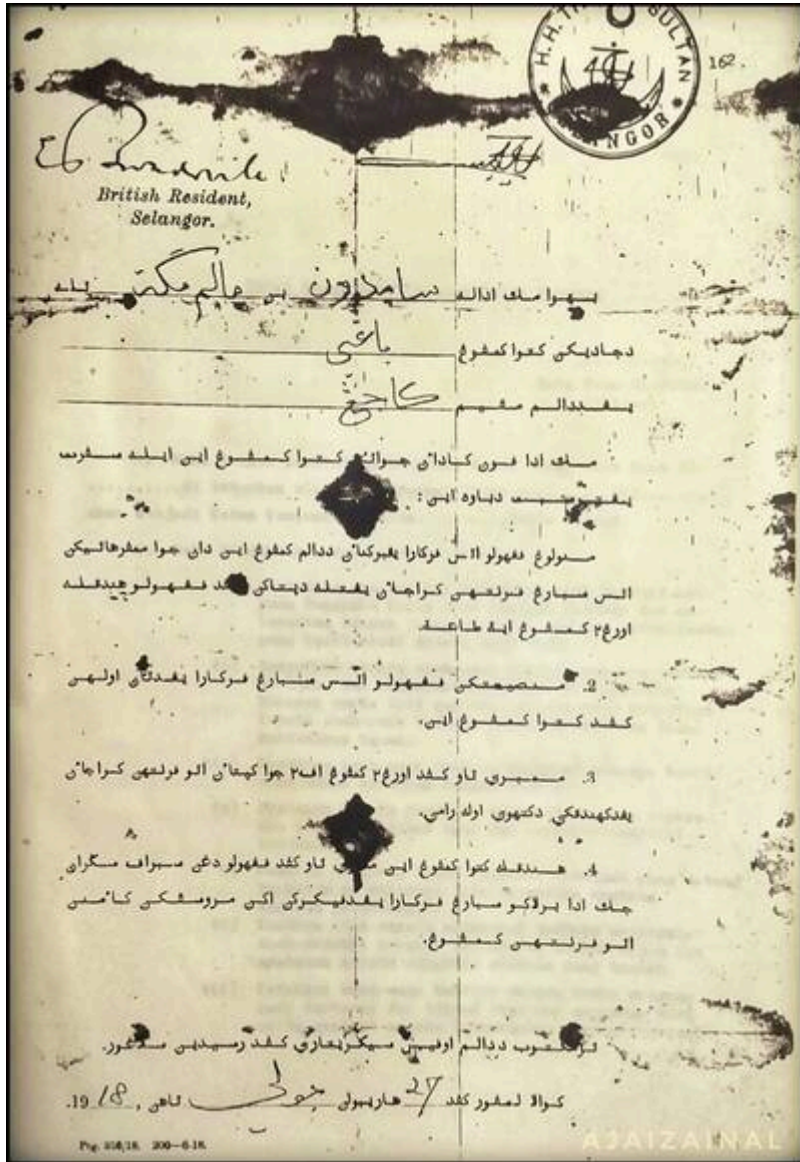 H.H. TH SULTAN
NGOR
162.
British Resident,
Selangor.
بهوا مك اداله سامدون بن حاج
دجاديكن كتوا كمفوڠ باڠي
يڠددالم مقيم كاجڠ
مك ادا فون كادأن جواتن كتوا كمفوڠ اين ايله سفرت
يڠترسبت دباوه اين :
منولوڠ ڤڠهولو اتس فركارا ددالم كمفوڠ اين دان جوا
اتس سبارڠ فرنتهن كراجأن يڠتله ڤڠهولو هندقله
اورڠ٢ كمفوڠ ايت طاعة.
2. منصيحتكن ڤڠهولو اتس سبارڠ فركارا اولهن
كفد كتوا كمفوڠ اين.
3. ممبري تاو كفد اورڠ٢ كمفوڠ اف٢ جوا كپتأن اتو فرنتهن كراجأن
يڠدكهندقكن دكتهوي اوله رامي.
4. هندقله كتوا كمفوڠ اين تاو كفد ڤڠهولو دڠن سبراف سڬران
جك ادا برلاكو سبارڠ فركارا يڠدفيكركن اكن مروسقكن كأمنن
اتو فرنتهن كمفوڠ.
ترمكتوب ددالم اوفيس سيكريتاري كفد رسيدين سلاڠور.
كوالا لمفور كفد 27 هاريبولن جولي تاهن ,1918.
Ptg. 356/18. 200—6-18.
AJAIZAINAL